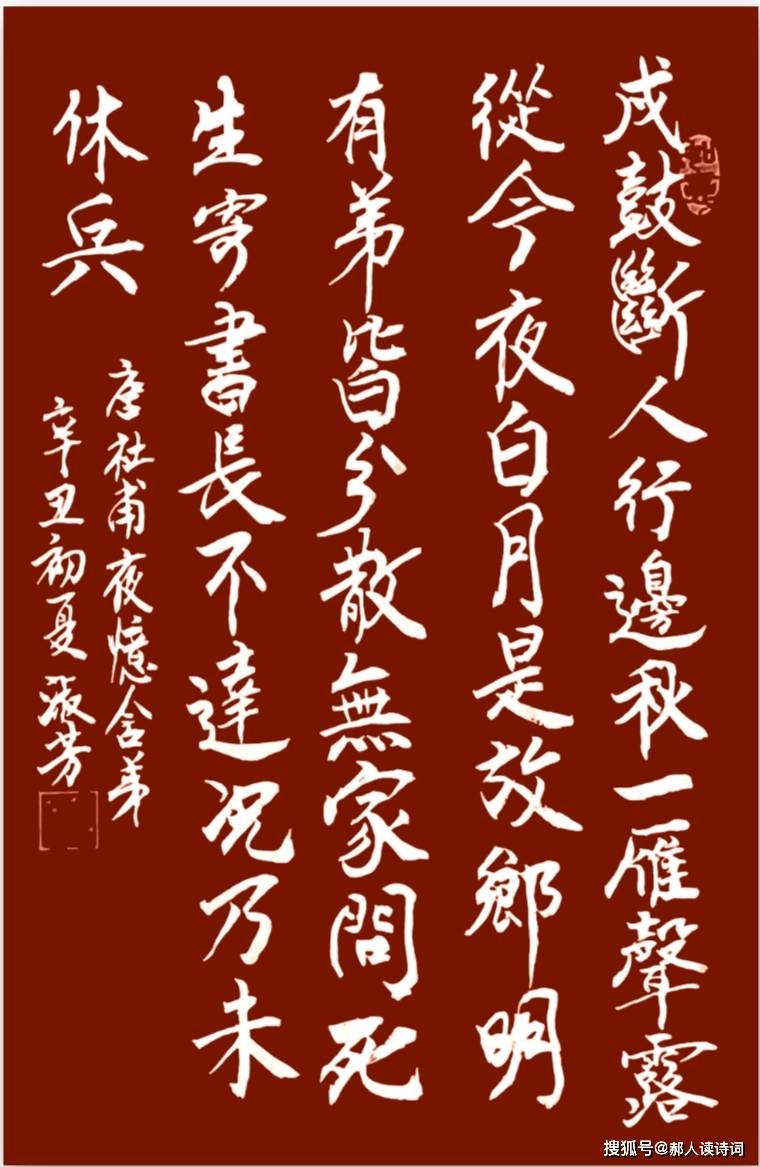 戍鼓斷人行邊秋一雁聲露
從今夜白月是故鄉明
有弟皆分散無家問死
生寄書長不達況乃未
休兵
唐杜甫夜憶舍弟
辛丑初夏張芳
搜狐号@郝人读诗词